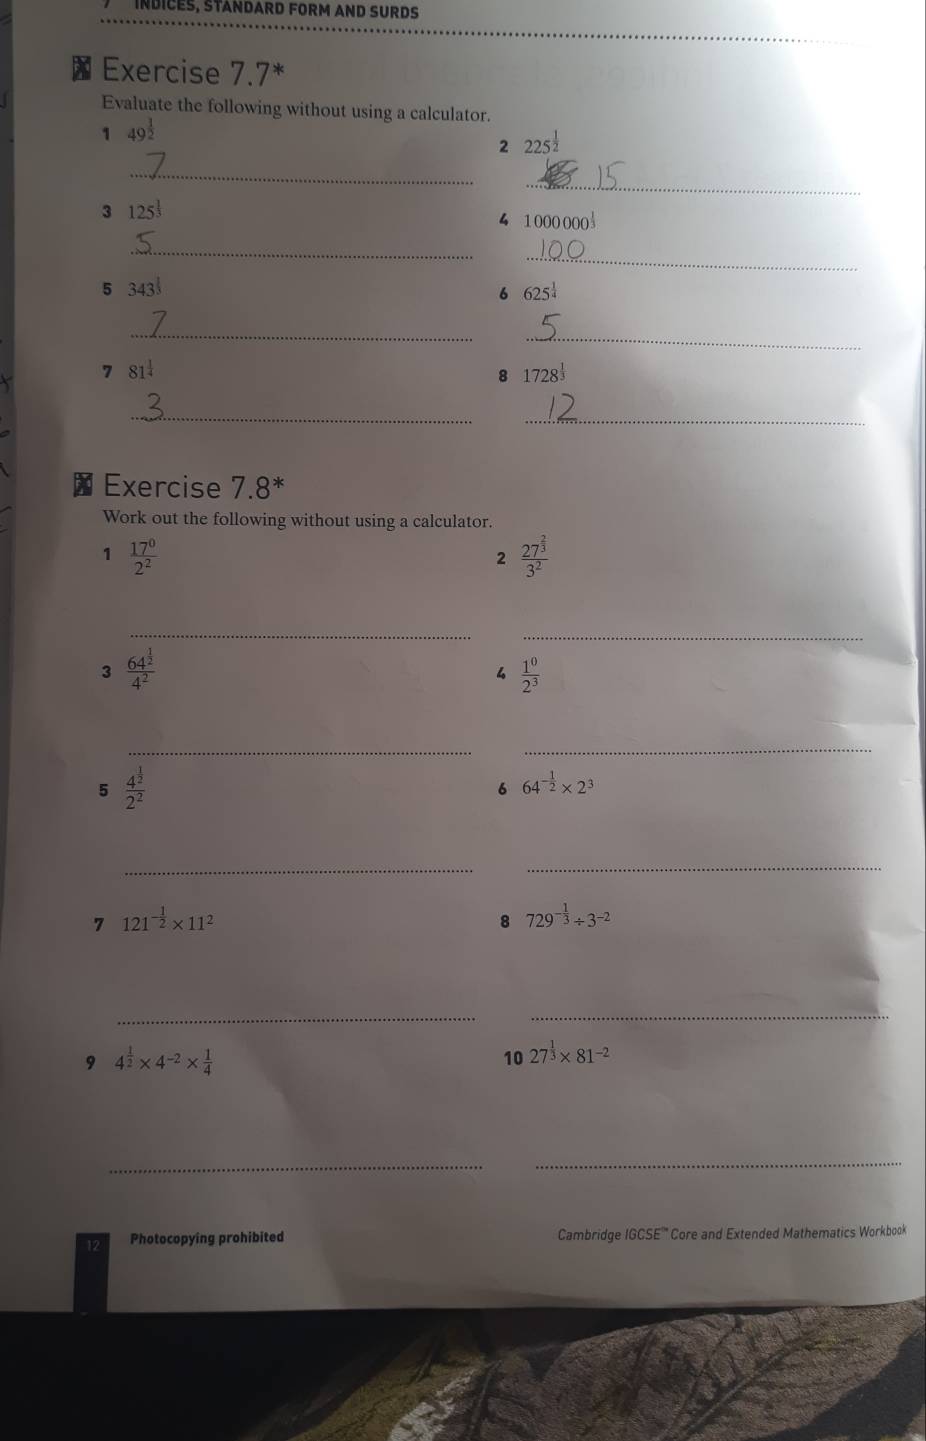 7 INDICES, STANDARD FORM AND SURDS
Exercise 7.7*
Evaluate the following without using a calculator.
1 49^(1/2)
2 225^(1/2)
7
15
3 125^(1/3)
4 1 000 000^(1/3)
5
100
5 343^(1/3)
6 625^(1/4)
7
5
7 81^(1/4)
8 1728^(1/3)
3
12
Exercise 7.8*
Work out the following without using a calculator.
1 17^0/2^2
2 27^(2/3)/3^2
3 64^(1/2)/4^2
4 1^0/2^3
5 4^(1/2)/2^2
6 64^(-1/2) × 2^3
7 121^(-1/2) × 11^2
8 729^(-1/3) ÷ 3^-2
9 4^(1/2) × 4^-2 × 1/4
10 27^(1/3) × 81^-2
12 Photocopying prohibited
Cambridge IGCSE™ Core and Extended Mathematics Workbook